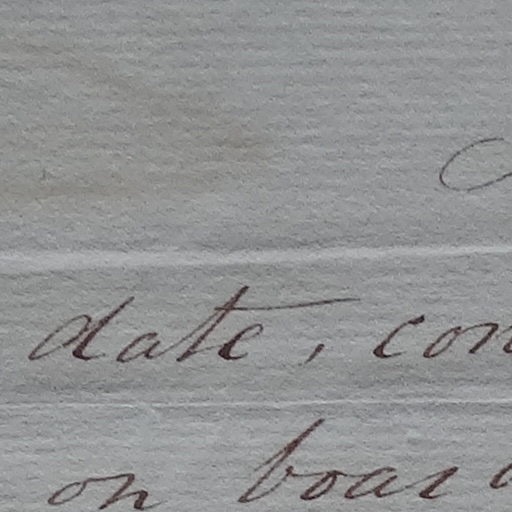 date, con
on board